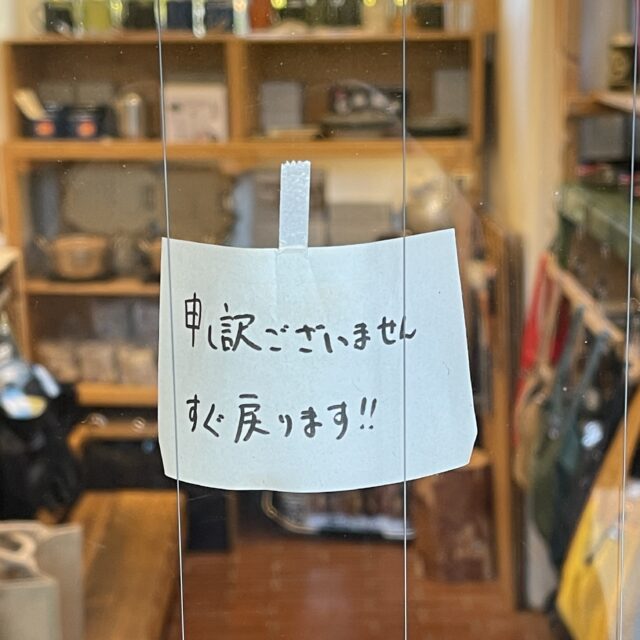 申し訳ございません
すぐ戻ります!!